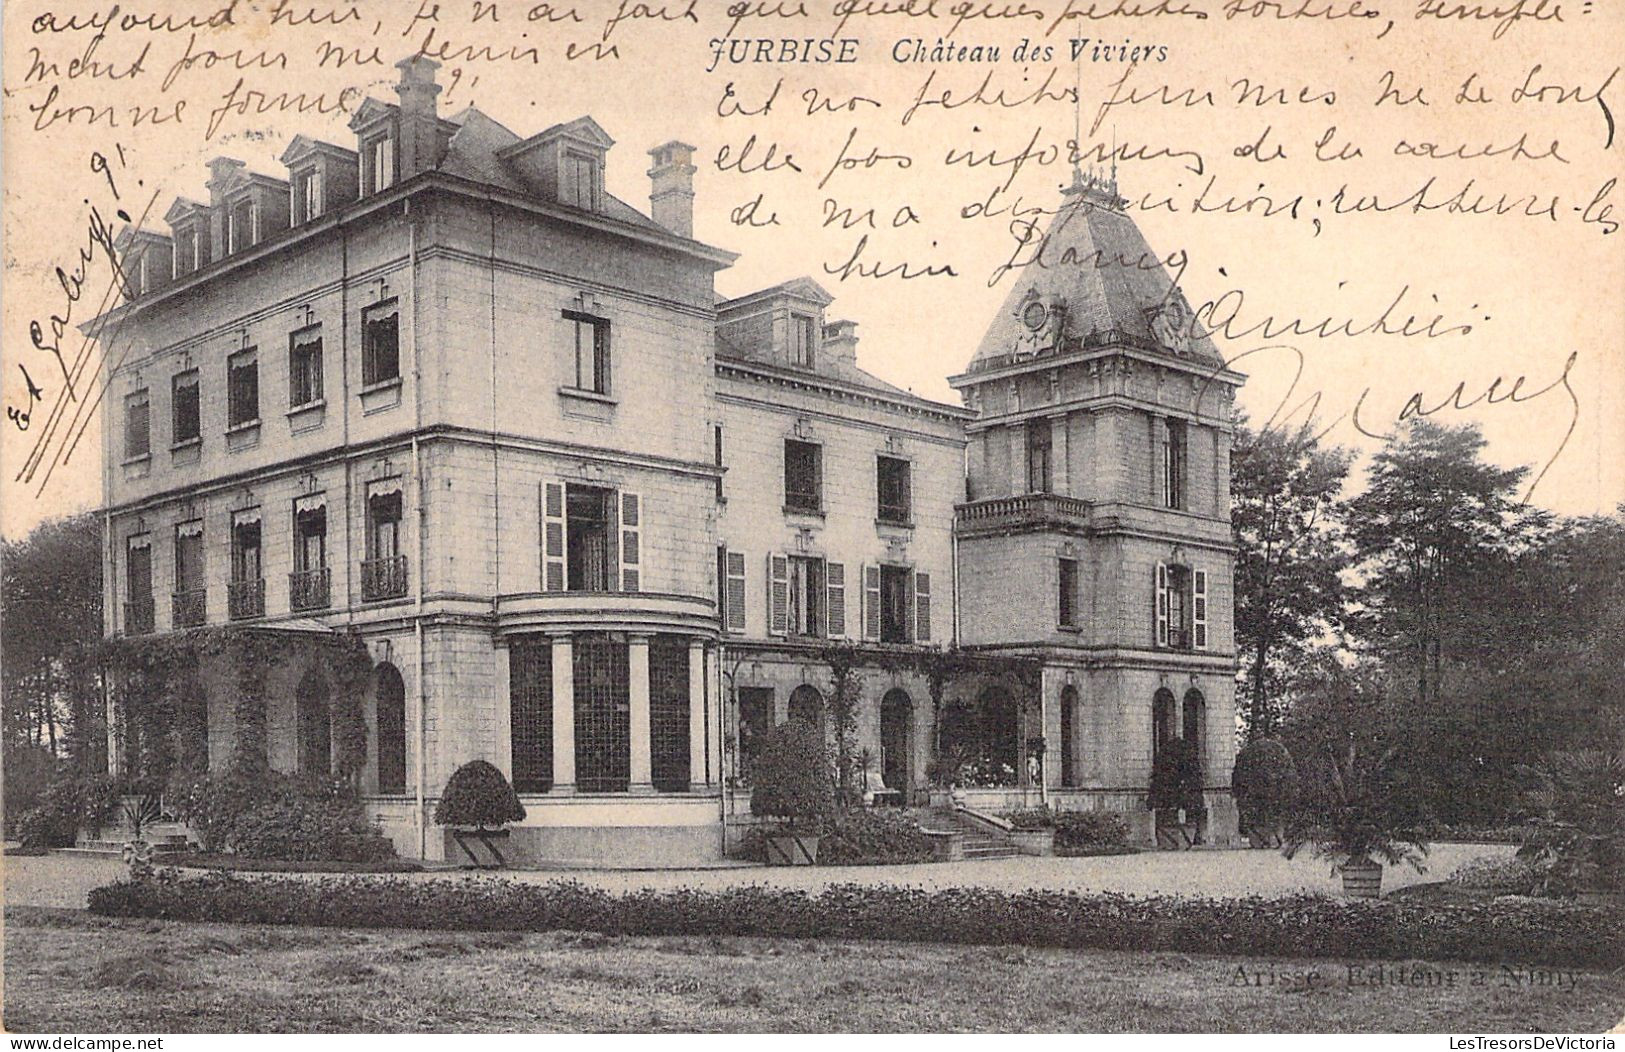 aujourd'hui, je n'ai fait que quelques petites sorties, simple=
ment pour me tenir en
bonne forme
JURBISE Château des Viviers
Et nos petites femmes ne se sont
elle pas informes de la cause
de ma disparition; rassure-les
hein
Amitiés
Marcel
Et Gaby?!
Arisse, Editeur a Nimy
delcampe.net
LesTresorsDeVictoria